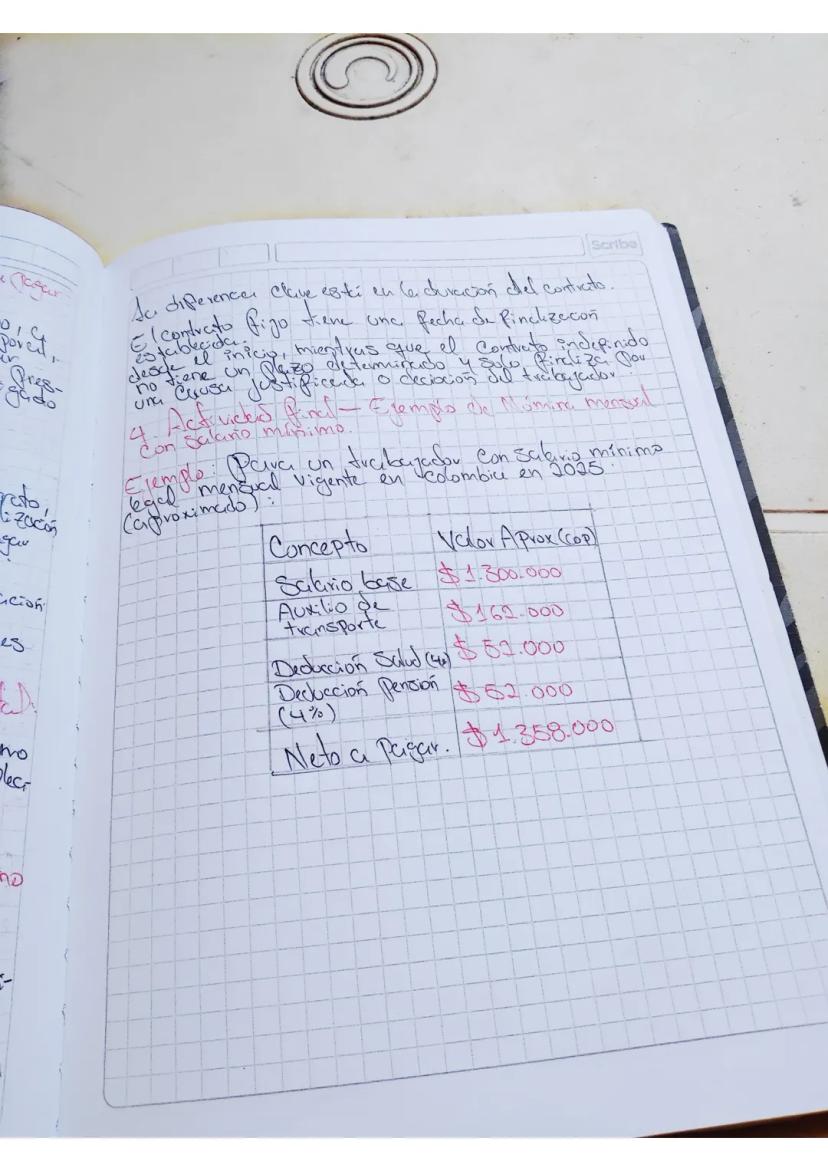 Scribe
La diferencia clave está en la duración del contrato.
El contrato fijo tiene una fecha de finalización
establecida
desde el inicio, mientras que el contrato indefinido
no tiene un plazo determinado y solo finaliza por
una causa justificada o decisión del trabajador.
4. Actividad final – Ejemplo de Nómina mensual
con salario mínimo.
Ejemplo: Para un trabajador con salario mínimo
legal mensual vigente en Colombia en 2025
(aproximado):
Concepto Valor Aprox (COP)
Salario base $ 1.300.000
Auxilio de
transporte $ 162.000
Deducción Salud (4%) $ 52.000
Deducción Pensión
(4%) $ 52.000
Neto a Pagar. $ 1.358.000